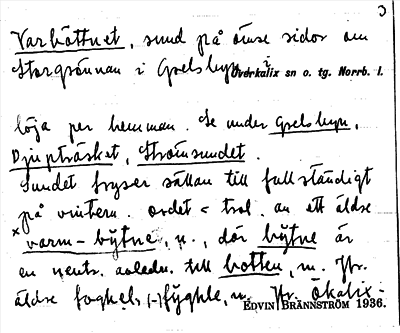 3
Varbottnet, sund på ömse sidor om
Storgrönnan i Grelsbyn i
Överkalix sn o. tg. Norrb. l.
löja per hemman. Se under Grelsbyn,
Djupträsket, Strömsundet.
Sundet fryser sällan till fullständigt
på vintern. Ordet < trol. an ett äldre
*varm-bytne, n., där bytne är
en neutr. avledn. till botten, m. Jfr
äldre foghel: (-)fyghle, n. Jfr Ökalix-
EDVIN BRÄNNSTRÖM 1936.